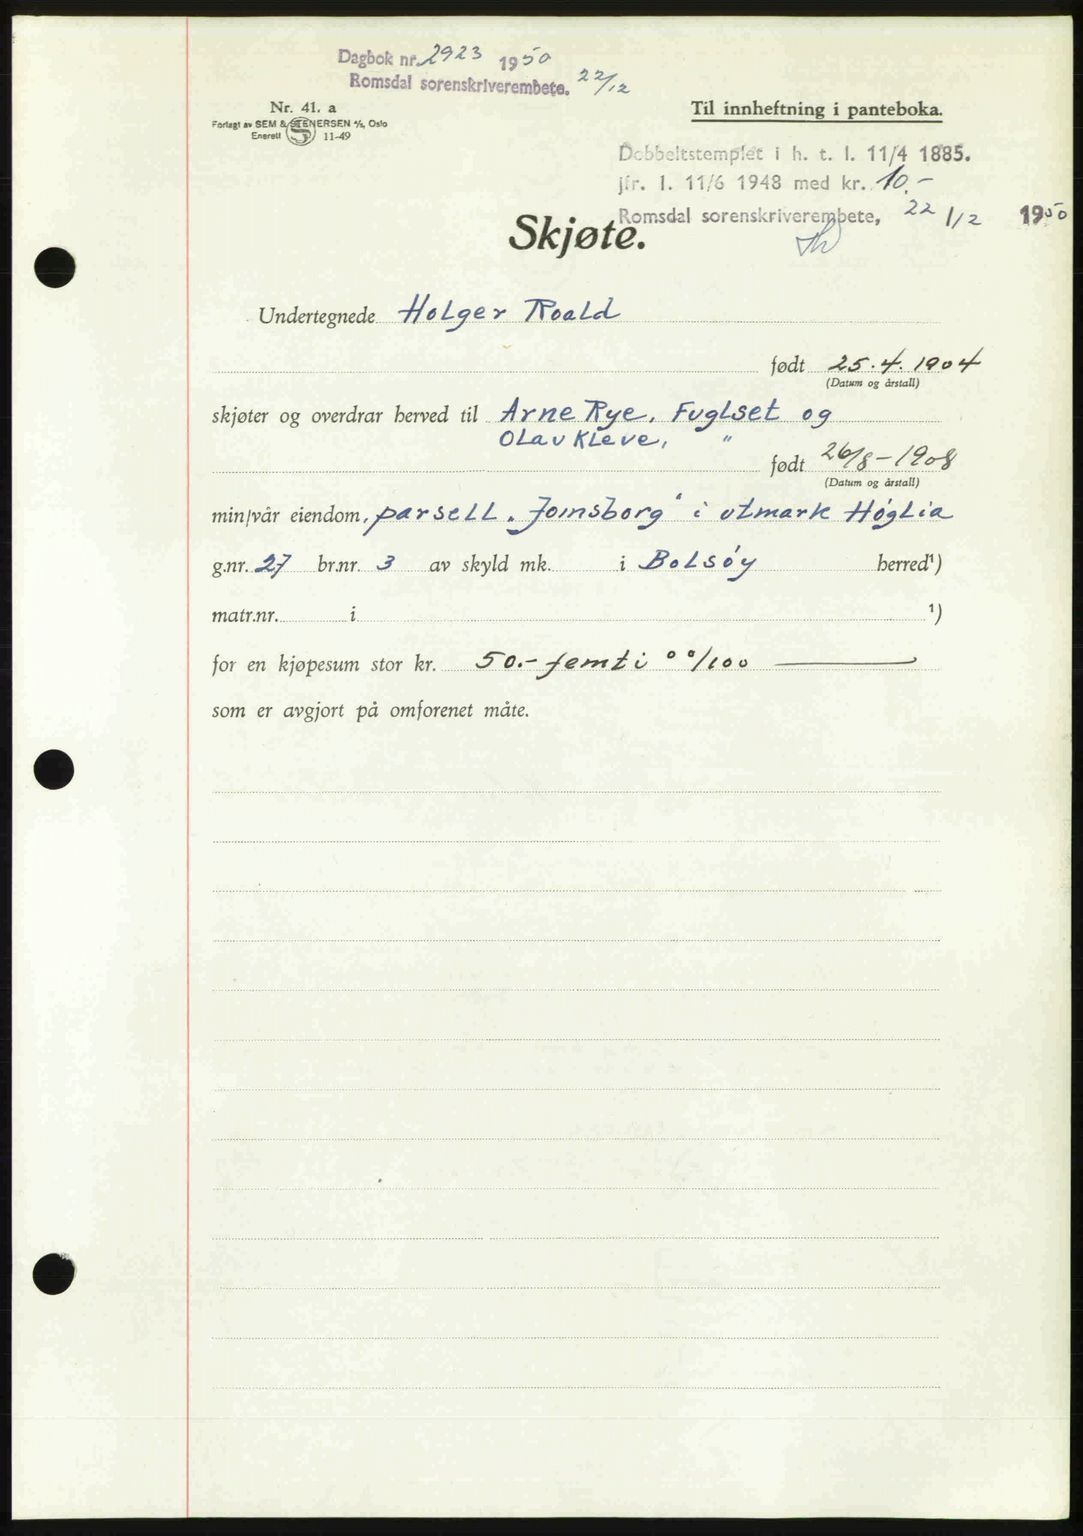 Dagbok nr. 2923 1950
Romsdal sorenskriverembete. 22/12
Nr. 41. a
Forlagt av SEM & STENERSEN A/S, Oslo
Enerett S 11-49
Til innheftning i panteboka.
Dobbeltstemplet i h. t. l. 11/4 1885.
jfr. l. 11/6 1948 med kr. 10.-
Romsdal sorenskriverembete, 22/12 1950
Skjøte.
Undertegnede Holger Roald
født 25.4.1904
(Datum og årstall)
skjøter og overdrar herved til Arne Rye, Fuglset og
Olav Kleve, "
født 26/8-1908
(Datum og årstall)
min/vår eiendom, parsell „Jomsborg" i utmark Høglia
g.nr. 27 br.nr. 3 av skyld mk. i Bolsøy herred¹)
matr.nr. i ¹)
for en kjøpesum stor kr. 50.- femti 00/100
som er avgjort på omforenet måte.